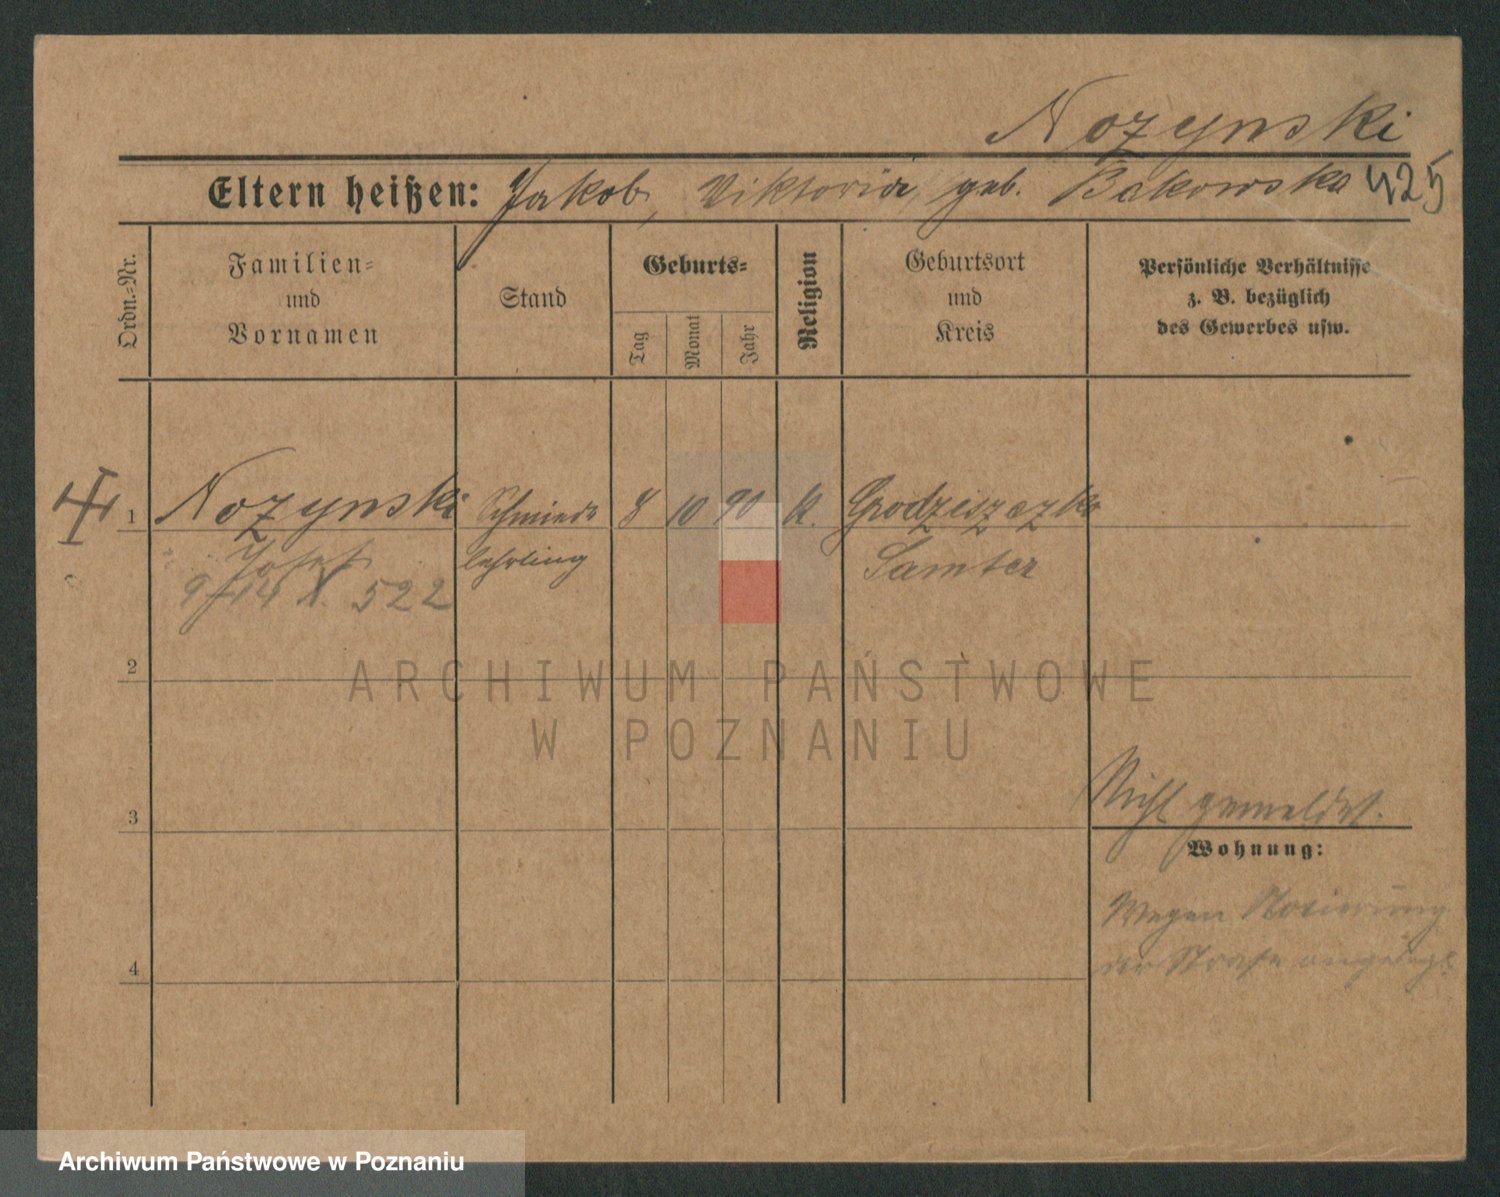 Nozynski
Eltern heißen: Jakob, Viktoria, geb. Bakowska 425
Ordn.-Nr.
Familien-
und
Vornamen
Stand
Geburts-
Tag
Monat
Jahr
Religion
Geburtsort
und
Kreis
Persönliche Verhältnisse
z. B. bezüglich
des Gewerbes usw.
1 Nozynski Schmiede 8 10 90 K. Grodziszczko
Josef lehrling Samter
9/14 X. 522
2
ARCHIWUM PAŃSTWOWE
W POZNANIU
Nicht gemeldet.
3
Wohnung:
Wegen Notierung
der Strafe angelegt
4
Archiwum Państwowe w Poznaniu